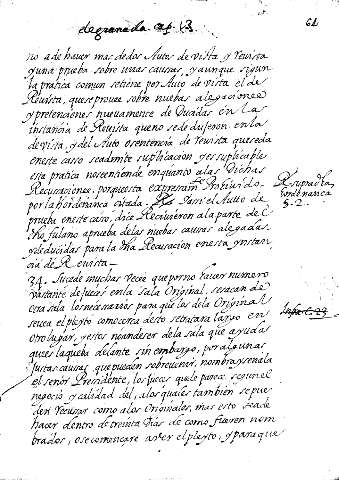 de granada cap. 3.
61
no a de haver mas de dos Autos de vista, y revista
y una prueba sobre unas causas, y aunque segun
la pratica comun se tiene por Auto de vista el de
Revista, que se provee sobre nuebas alegaciones
y pretenciones nuevamente deducidas en la
instancia de Revista que no se dedujeron en la
de vista, y del Auto o sentencia de revista que se da
en este caso se admite suplicacion y es suplicable
esta pratica no se entiende en quanto a las dichas
Recusaciones, porque esta expresam.te
por la hordenanza citada. el Auto de
prueba en este caso, dice Recivieron a la parte de
fulano a prueba de las nuebas causas alegadas
y deducidas para la dha Recusacion en esta instan
cia de Revista
R. supra dha
hordenanza
§. 2.
34. Sucede muchas veces que por no haver numero
vastante de Jueces en la Sala Original, se sacan de
otra sala los necesarios para que los de la Original
vean el pleyto como cerca desto se tratara largo en
otro lugar, y estos se an de ser de la sala que ayuda
a que es la que ba delante sin embargo, por algunas
Justas causas que pueden sobrevenir, nombra y señala
el señor Presidente, los Jueces que le parece segun el
negocio y calidad del, a los quales tambien se pue
den recusar como a los Originales, mas esto se a de
hacer dentro de treinta dias de como fueren nom
brados, o se comenzare a ver el pleyto, y para que
Infra c. 23